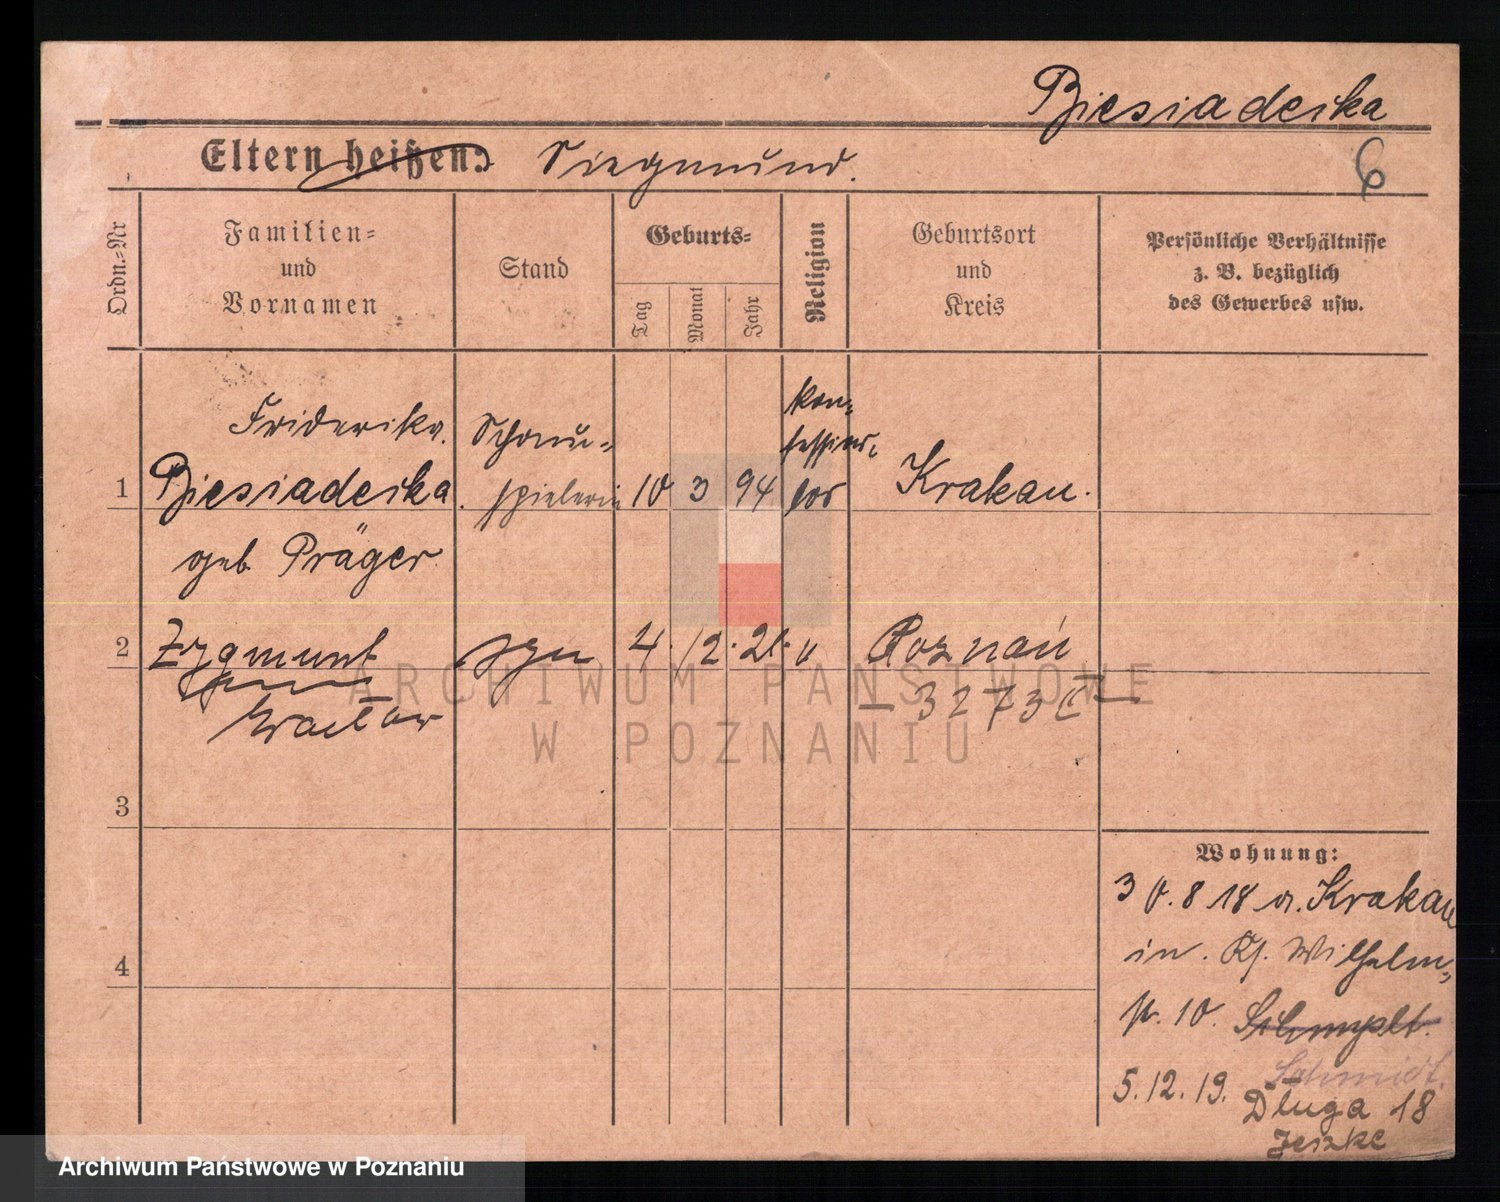 Biesiadecka
Eltern heißen: Siegmund.
6
Ordn.-Nr
Familien-
und
Vornamen
Stand
Geburts-
Tag
Monat
Jahr
Religion
Geburtsort
und
Kreis
Persönliche Verhältnisse
z. B. bezüglich
des Gewerbes usw.
Friderika
Schau-
kon-
fessions-
1 Biesiadecka spielerin 10 3 94 los Krakau.
geb. Präger
2 Zygmunt syn 4. 12. 21. Poznań
Wacław
3273
3
4
Wohnung:
30. 8 18 a. Krakau
in. Wilhelm-
str. 10.
5. 12. 19. Schmidt.
Długa 18
Jeszke
ARCHIWUM PAŃSTWOWE
W POZNANIU
Archiwum Państwowe w Poznaniu